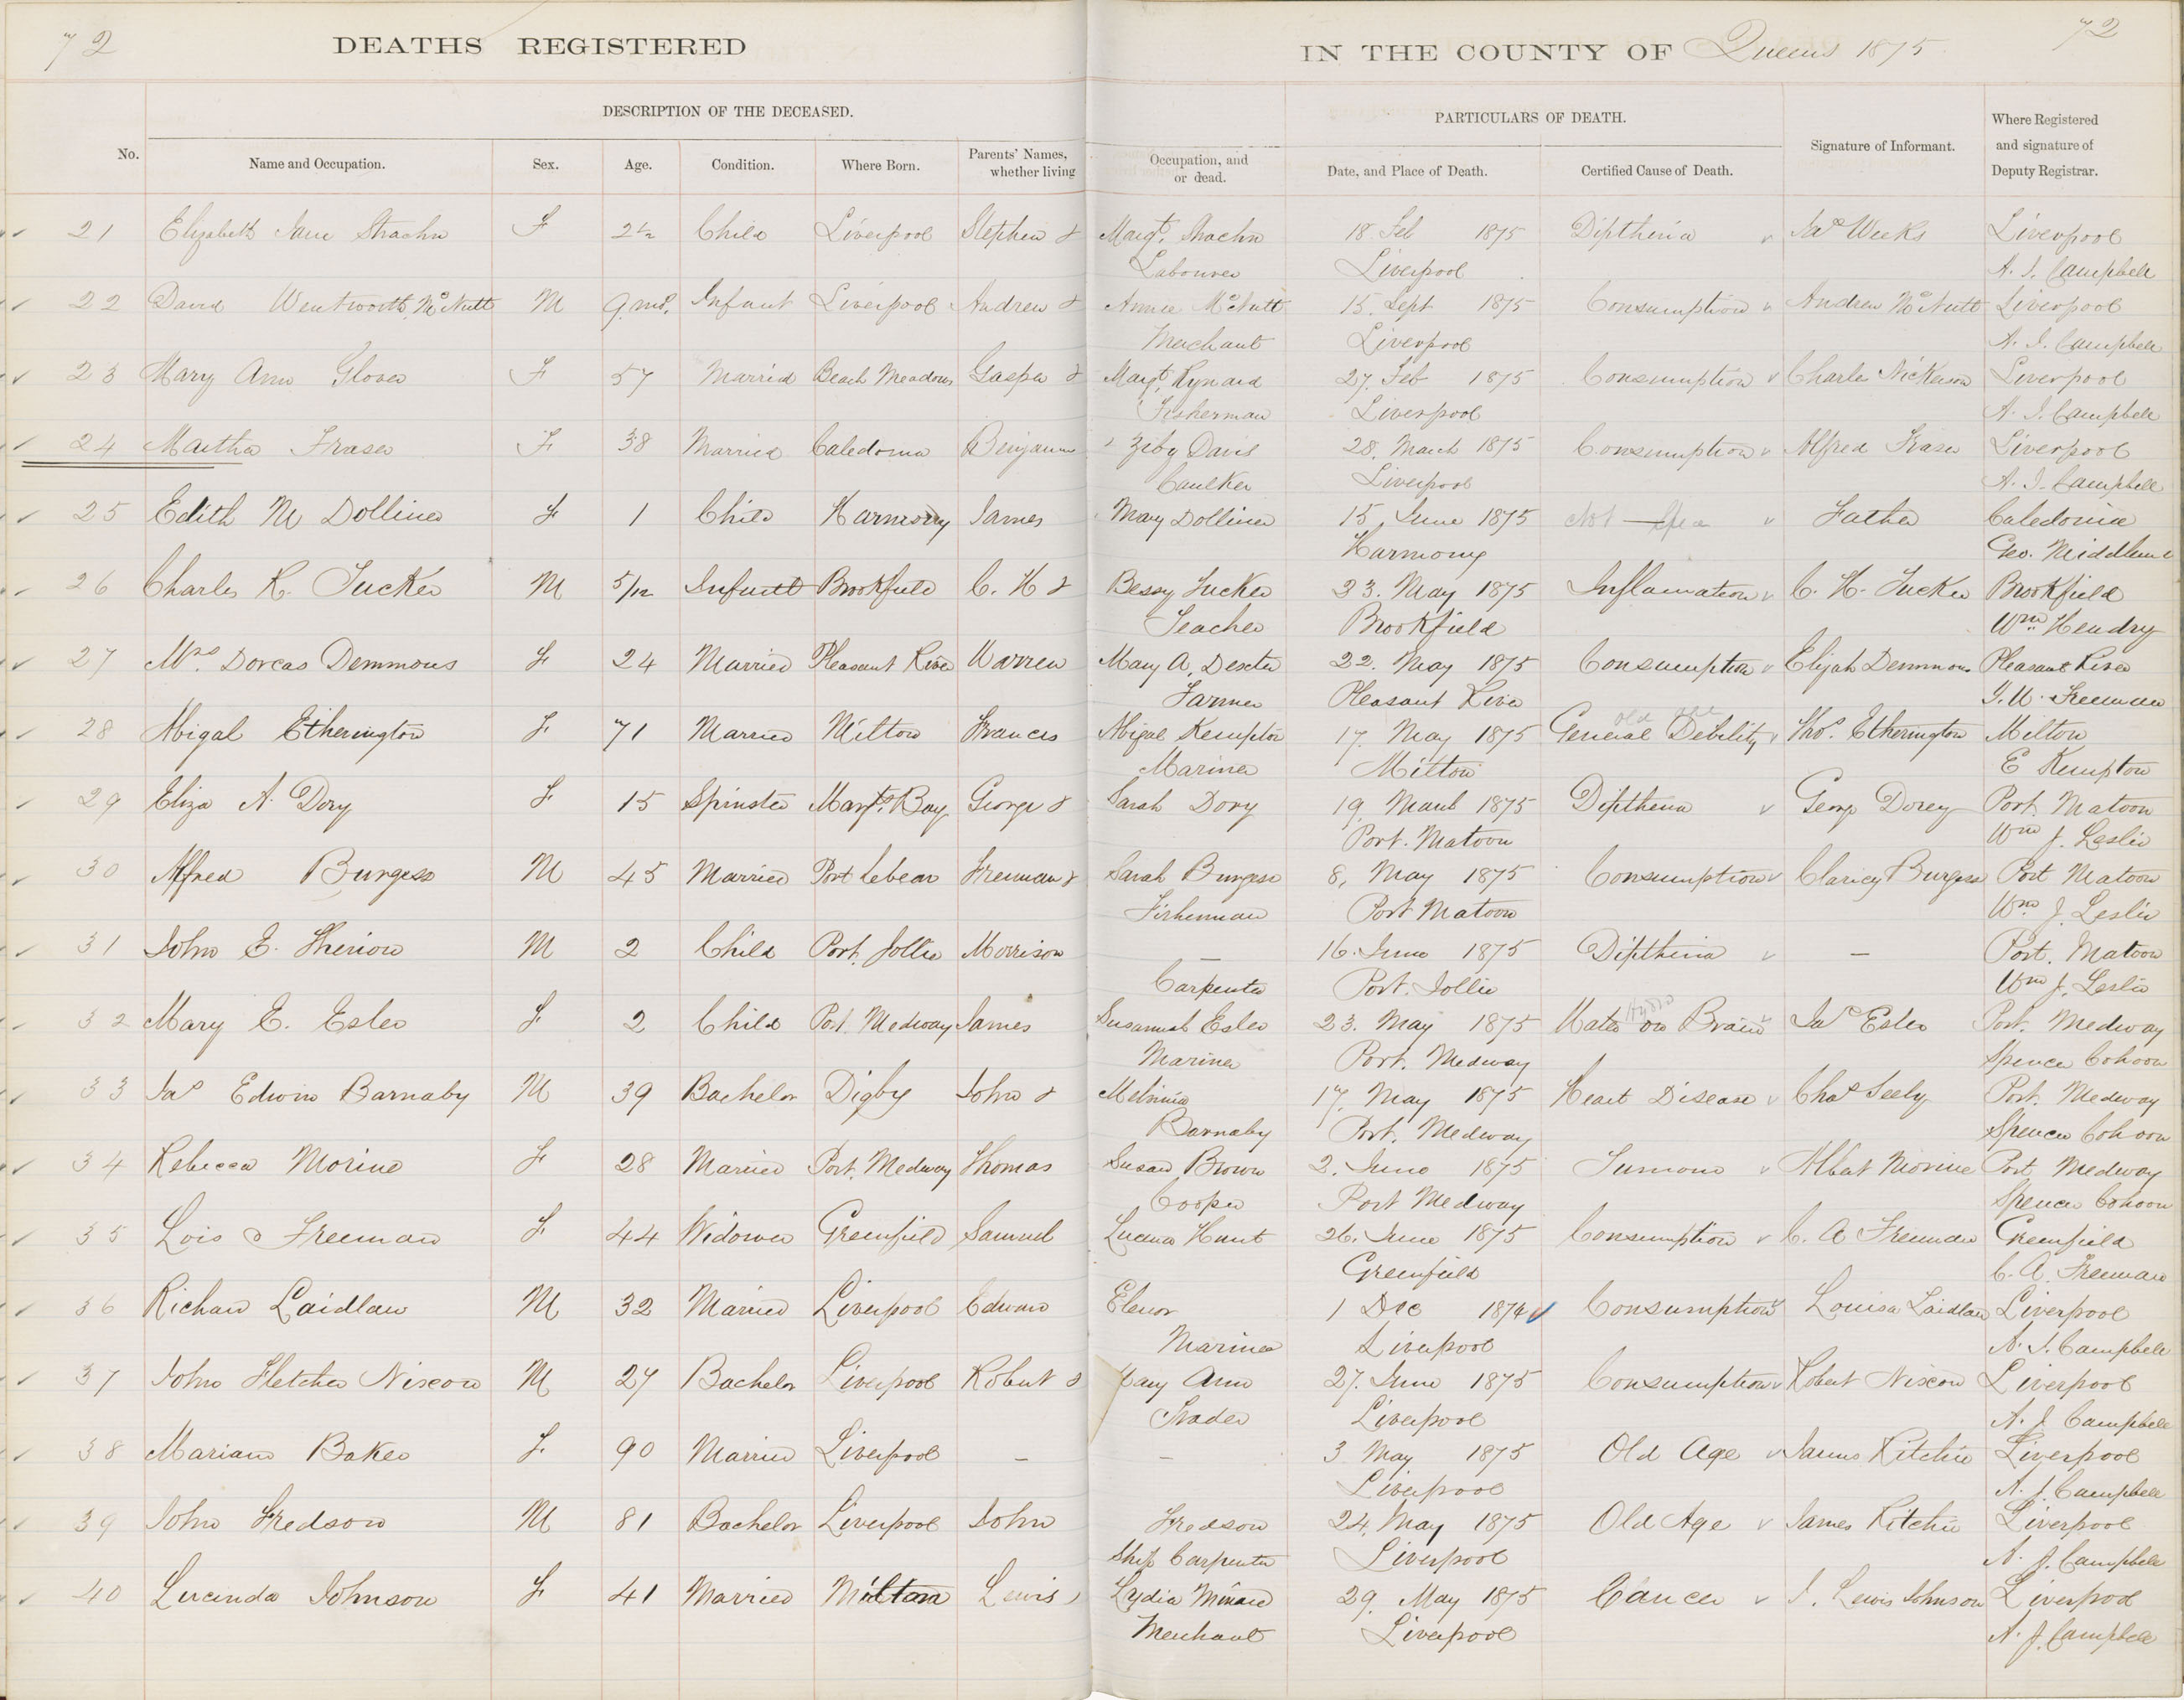 72 DEATHS REGISTERED IN THE COUNTY OF Queens 1875 72
DESCRIPTION OF THE DECEASED. PARTICULARS OF DEATH. Where Registered
and signature of
Deputy Registrar.
No. Name and Occupation. Sex. Age. Condition. Where Born. Parents' Names, whether living Occupation, and or dead. Date, and Place of Death. Certified Cause of Death. Signature of Informant.
21 Elizabeth Jane Strachn F 2½ Child Liverpool Stephen & Margt. Strachn 18 Feb 1875 Diptheria Jas Weeks Liverpool
Labourer Liverpool A. J. Campbell
22 David Wentworth McNutt M 9 mos. Infant Liverpool Andrew & Annie McNutt 15. Sept 1875 Consumption Andrew McNutt Liverpool
Merchant Liverpool A. J. Campbell
23 Mary Ann Glover F 57 Married Beach Meadows Gasper & Margt. Rynard 27. Feb 1875 Consumption Charles Nickerson Liverpool
Fisherman Liverpool A. J. Campbell
24 Martha Fraser F 38 Married Caledonia Benjamin Davis 28. March 1875 Consumption Alfred Fraser Liverpool
Caulker Liverpool A. J. Campbell
25 Edith M Dolliver F 1 Child Harmony James Mary Dolliver 15, June 1875 Not Father Caledonia
Harmony Geo. Middlemas
26 Charles R. Tucker M 5/12 Infant Brookfield C. H & Bessy Tucker 23. May 1875 Inflamation C. H. Tucker Brookfield
Teacher Brookfield Wm Hendry
27 Mrs. Dorcas Demmons F 24 Married Pleasant River Warren Mary A. Dexter 22. May 1875 Consumption Elijah Demmons Pleasant River
Farmer Pleasant River Freeman
28 Abigal Etherington F 71 Married Milton Francis Abigal Kempton 17. May 1875 General Debility old age Thos. Etherington Milton
Mariner Milton E Kempton
29 Eliza A. Dory F 15 Spinster Margts. Bay George & Sarah Dory 19. March 1875 Diptheria George Dorey Port. Matoon
Port. Matoon Wm J. Leslie
30 Alfred Burgess M 45 Married Port Lebear Freeman & Sarah Burgess 8, May 1875 Consumption Claricy Burgess Port Matoon
Fisherman Port Matoon Wm. J. Leslie
31 John E. Therion M 2 Child Port. Jollie Morrison — 16. June 1875 Diptheria — Port. Matoon
Carpenter Port. Jollie Wm J. Leslie
32 Mary E. Esler F 2 Child Port. Medway James Susannah Esler 23. May 1875 Water on Brain Jas Esler Port. Medway
Mariner Port. Medway Spencer Cohoon
33 Jas Edwin Barnaby M 39 Bachelor Digby John & Melvinia 17. May 1875 Heart Disease Chas Seely Port. Medway
Barnaby Port. Medway Spencer Cohoon
34 Rebecca Morine F 28 Married Port. Medway Thomas Susan Brown 2. June 1875 Tumour Albert Morine Port Medway
Cooper Port Medway Spencer Cohoon
35 Lois Freeman F 44 Widower Greenfield Samuel Hunt 26. June 1875 Consumption C. A Freeman Greenfield
Greenfield C. A. Freeman
36 Richard Laidlaw M 32 Married Liverpool Edward Elenor 1 Dec 1874 Consumption Louisa Laidlaw Liverpool
Mariner Liverpool A. J. Campbell
37 John Fletcher Nixon M 27 Bachelor Liverpool Robert & Mary Ann 27. June 1875 Consumption Robert Nixon Liverpool
Trader Liverpool A. J. Campbell
38 Mariam Baker F 90 Married Liverpool — — 3 May 1875 Old Age James Ritchie Liverpool
Liverpool A. J. Campbell
39 John Fredson M 81 Bachelor Liverpool John Fredson 24. May 1875 Old Age James Ritchie Liverpool
Ship Carpenter Liverpool A. J. Campbell
40 Lucinda Johnson F 41 Married Milton Lewis Lydia Minard 29. May 1875 Cancer J. Lewis Johnson Liverpool
Merchant Liverpool A. J. Campbell